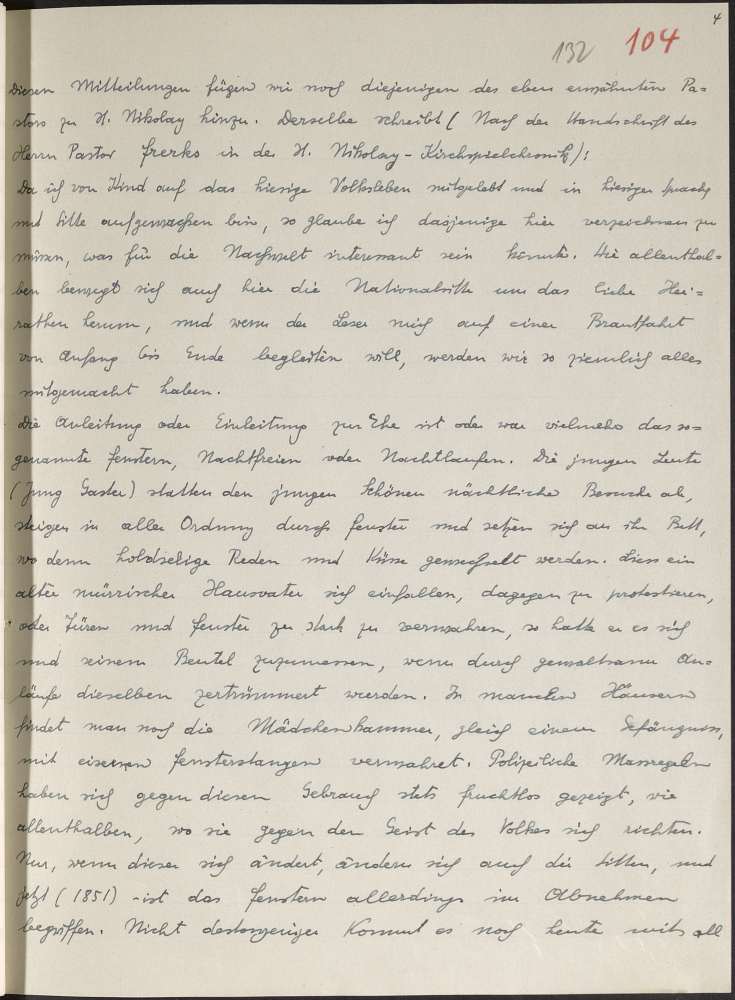 4
132 104
Diesen Mitteilungen fügen wir noch diejenigen des eben erwähnten Pa=
stors zu St. Nikolay hinzu. Derselbe schreibt (Nach der Handschrift des
Herrn Pastor Frerks in der St. Nikolay-Kirchspielchronik):
Da ich von Kind auf das hiesige Volksleben mitgelebt und in hiesiger Sprache
und Sitte aufgewachsen bin, so glaube ich dasjenige hier verzeichnen zu
müssen, was für die Nachwelt interessant sein könnte. Wie allenthal=
ben bewegt sich auch hier die Nationalsitte um das liebe Hei=
rathen herum, und wenn der Leser mich auf einer Brautfahrt
von Anfang bis Ende begleiten will, werden wir so ziemlich alles
mitgemacht haben.
Die Anleitung oder Einleitung zur Ehe ist oder war vielmehr das so=
genannte fenstern, Nachtfreien oder Nachtlaufen. Die jungen Leute
(Jung Gaster) statten den jungen Schönen nächtliche Besuche ab,
steigen in aller Ordnung durchs Fenster und setzen sich an ihr Bett,
wo denn holdselige Reden und Küsse gewechselt werden. Liess ein
alter mürrischer Hausvater sich einfallen, dagegen zu protestieren,
oder Türen und Fenster zu stark zu verwahren, so hatte er es sich
und seinem Beutel zuzumessen, wenn durch gewaltsame An=
läufe dieselben zertrümmert wurden. In manchen Häusern
findet man noch die Mädchenkammer, gleich einem Gefängniss,
mit eisernen Fensterstangen verwahret. Polizeiliche Massregeln
haben sich gegen diesen Gebrauch stets fruchtlos gezeigt, wie
allenthalben, wo sie gegen den Geist des Volkes sich richten.
Nur, wenn dieser sich ändert, ändern sich auch die Sitten, und
jetzt (1851) - ist das fenstern allerdings im Abnehmen
begriffen. Nicht destoweniger kommt es noch heute mit all